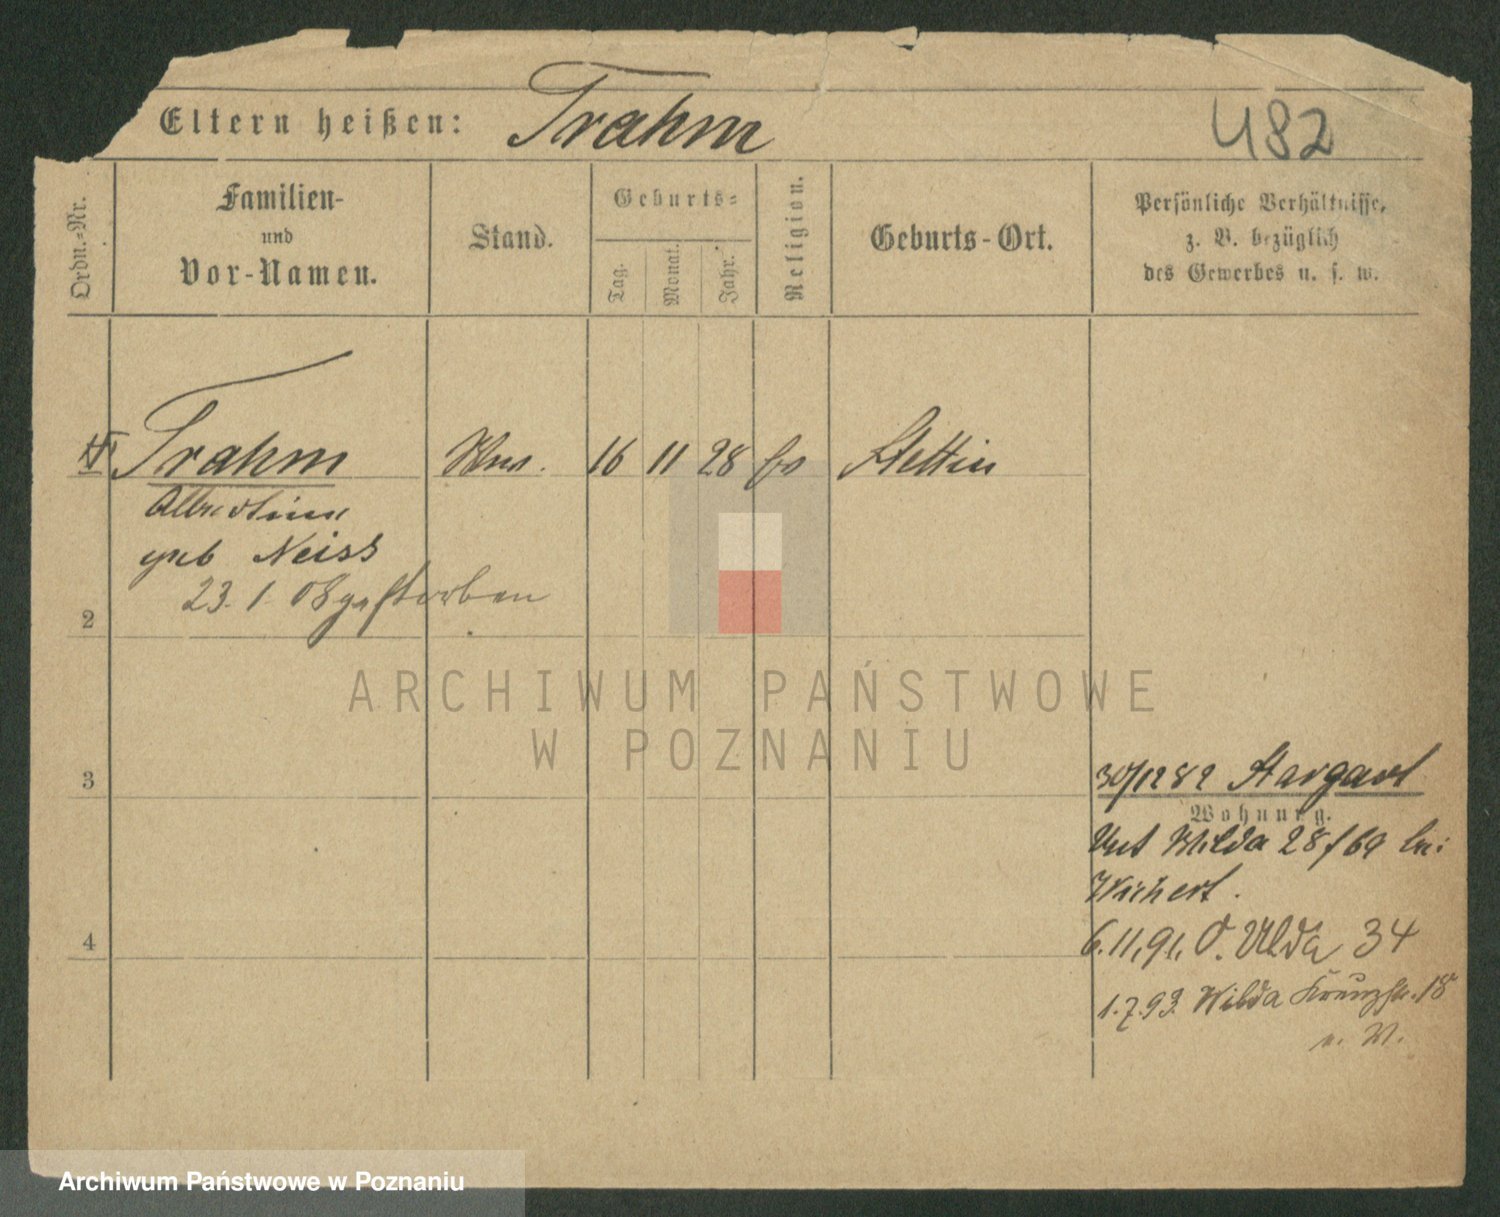 Eltern heißen: Trahm
482
Ordn.-Nr.
Familien-
und
Vor-Namen.
Stand.
Geburts-
Tag.
Monat.
Jahr.
Religion.
Geburts-Ort.
Persönliche Verhältnisse,
z. B. bezüglich
des Gewerbes u. s. w.
Trahm
Albertine
geb Neiss
23. 1. 08 gestorben
Ww. 16 11 28 Stettin
2
3
4
30/12 82 Stargard
Wohnung.
Unt Wilda 28/69 bei
Wichert.
6.11.91. O. Wilda 34
1.7.93. Wilda Kreuzstr. 18
n. W.
ARCHIWUM PAŃSTWOWE
W POZNANIU
Archiwum Państwowe w Poznaniu